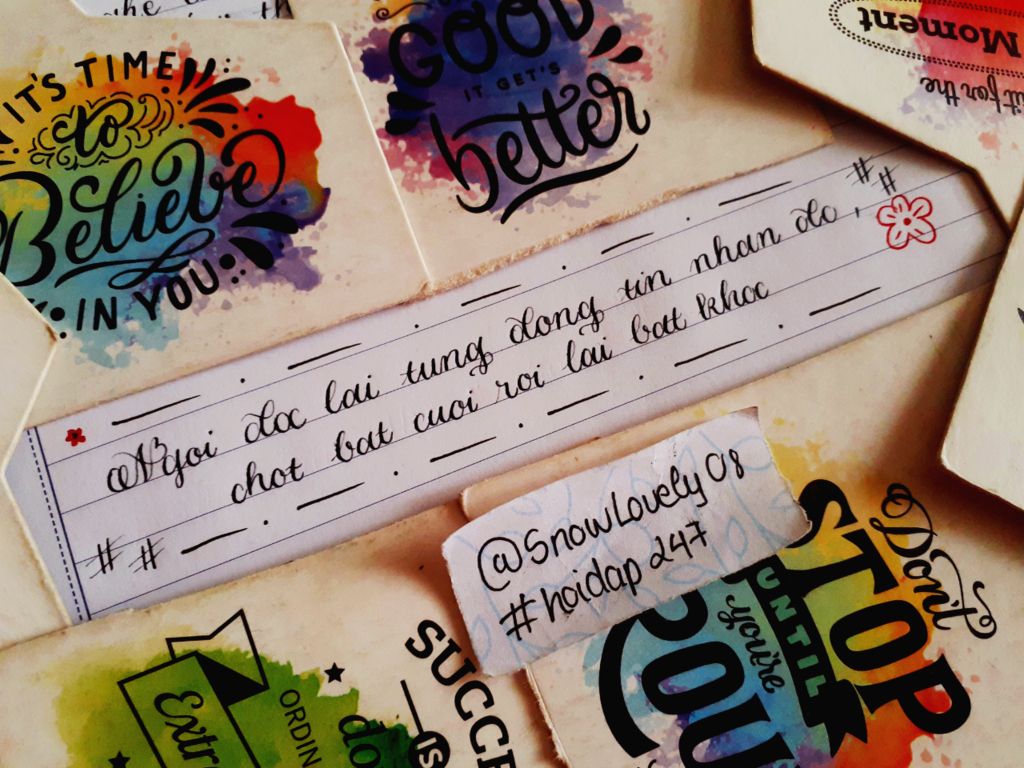 IT'S TIME
to
Believe
IN YOU
GOOD
IT GET'S
better
Moment
it for the
Ngoi doc lai tung dong tin nhan do,
chot bat cuoi roi lai bat khoc
@SnowLovely 08
#hoidap 247
Don't
STOP
UNTIL
you're
SUCCE
IS
ORDIN
do